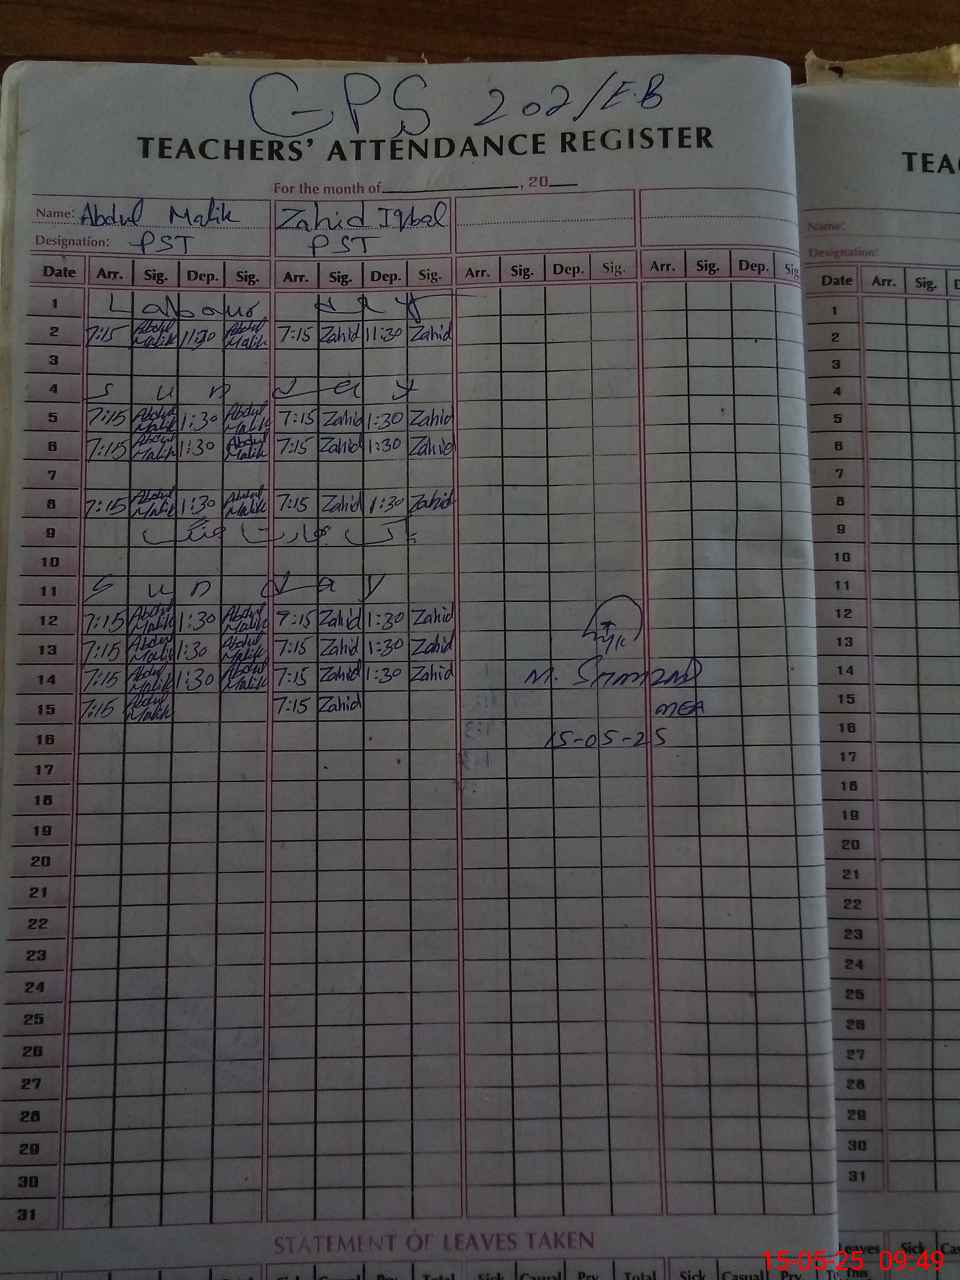 GPS 202/E.B
TEACHERS' ATTENDANCE REGISTER
For the month of , 20
Name: Abdul Malik Zahid Iqbal
Designation: PST PST
Date Arr. Sig. Dep. Sig. Arr. Sig. Dep. Sig. Arr. Sig. Dep. Sig. Arr. Sig. Dep. Sig.
1 Labour Day
2 7:15 Abdul Malik 11:30 Abdul Malik 7:15 Zahid 11:30 Zahid
3
4 Sun day
5 7:15 Abdul Malik 1:30 Abdul Malik 7:15 Zahid 1:30 Zahid
6 7:15 Abdul Malik 1:30 Abdul Malik 7:15 Zahid 1:30 Zahid
7
8 7:15 Abdul Malik 1:30 Abdul Malik 7:15 Zahid 1:30 Zahid
9 پاک بھارت جنگ
10
11 Sun day
12 7:15 Abdul Malik 1:30 Abdul Malik 7:15 Zahid 1:30 Zahid
13 7:15 Abdul Malik 1:30 Abdul Malik 7:15 Zahid 1:30 Zahid
14 7:15 Abdul Malik 1:30 Abdul Malik 7:15 Zahid 1:30 Zahid M.
15 7:15 Abdul Malik 7:15 Zahid MEA
16 15-05-25
17
18
19
20
21
22
23
24
25
26
27
28
29
30
31
STATEMENT OF LEAVES TAKEN
Sick Casual Prv. Total Sick Casual Prv. Total Sick Casual Prv.
TEA
Name:
Designation:
Date Arr. Sig.
1
2
3
4
5
6
7
8
9
10
11
12
13
14
15
16
17
18
19
20
21
22
23
24
25
26
27
28
29
30
31
Leaves Sick Cas
15-05-25 09:49